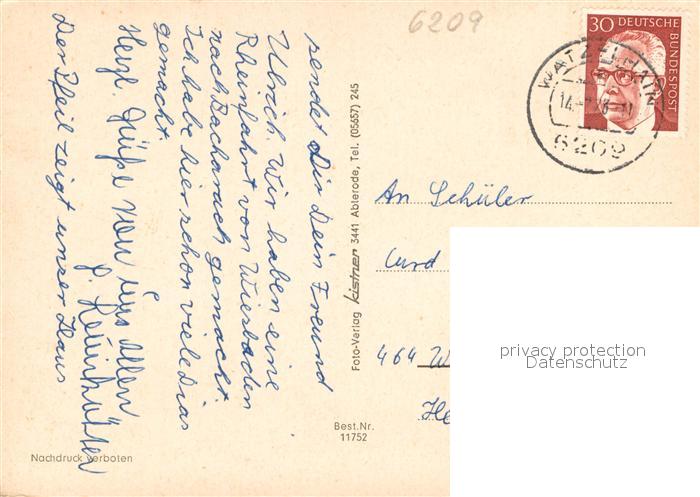 6209
30 DEUTSCHE BUNDESPOST
WATZELHAIN
14.
6209
sendet Dir Dein Freund
Ulrich. Wir haben eine
Rheinfahrt von Wiesbaden
nach Bacharach gemacht.
Ich habe hier schon viele Dias
gemacht.
Herzl. Grüße von uns allen
Der Pfeil zeigt unser Haus
Foto-Verlag kistner 3441 Ablerode, Tel. (05657) 245
An Schüler
464 W
He
Best.Nr.
11752
Nachdruck verboten
privacy protection
Datenschutz